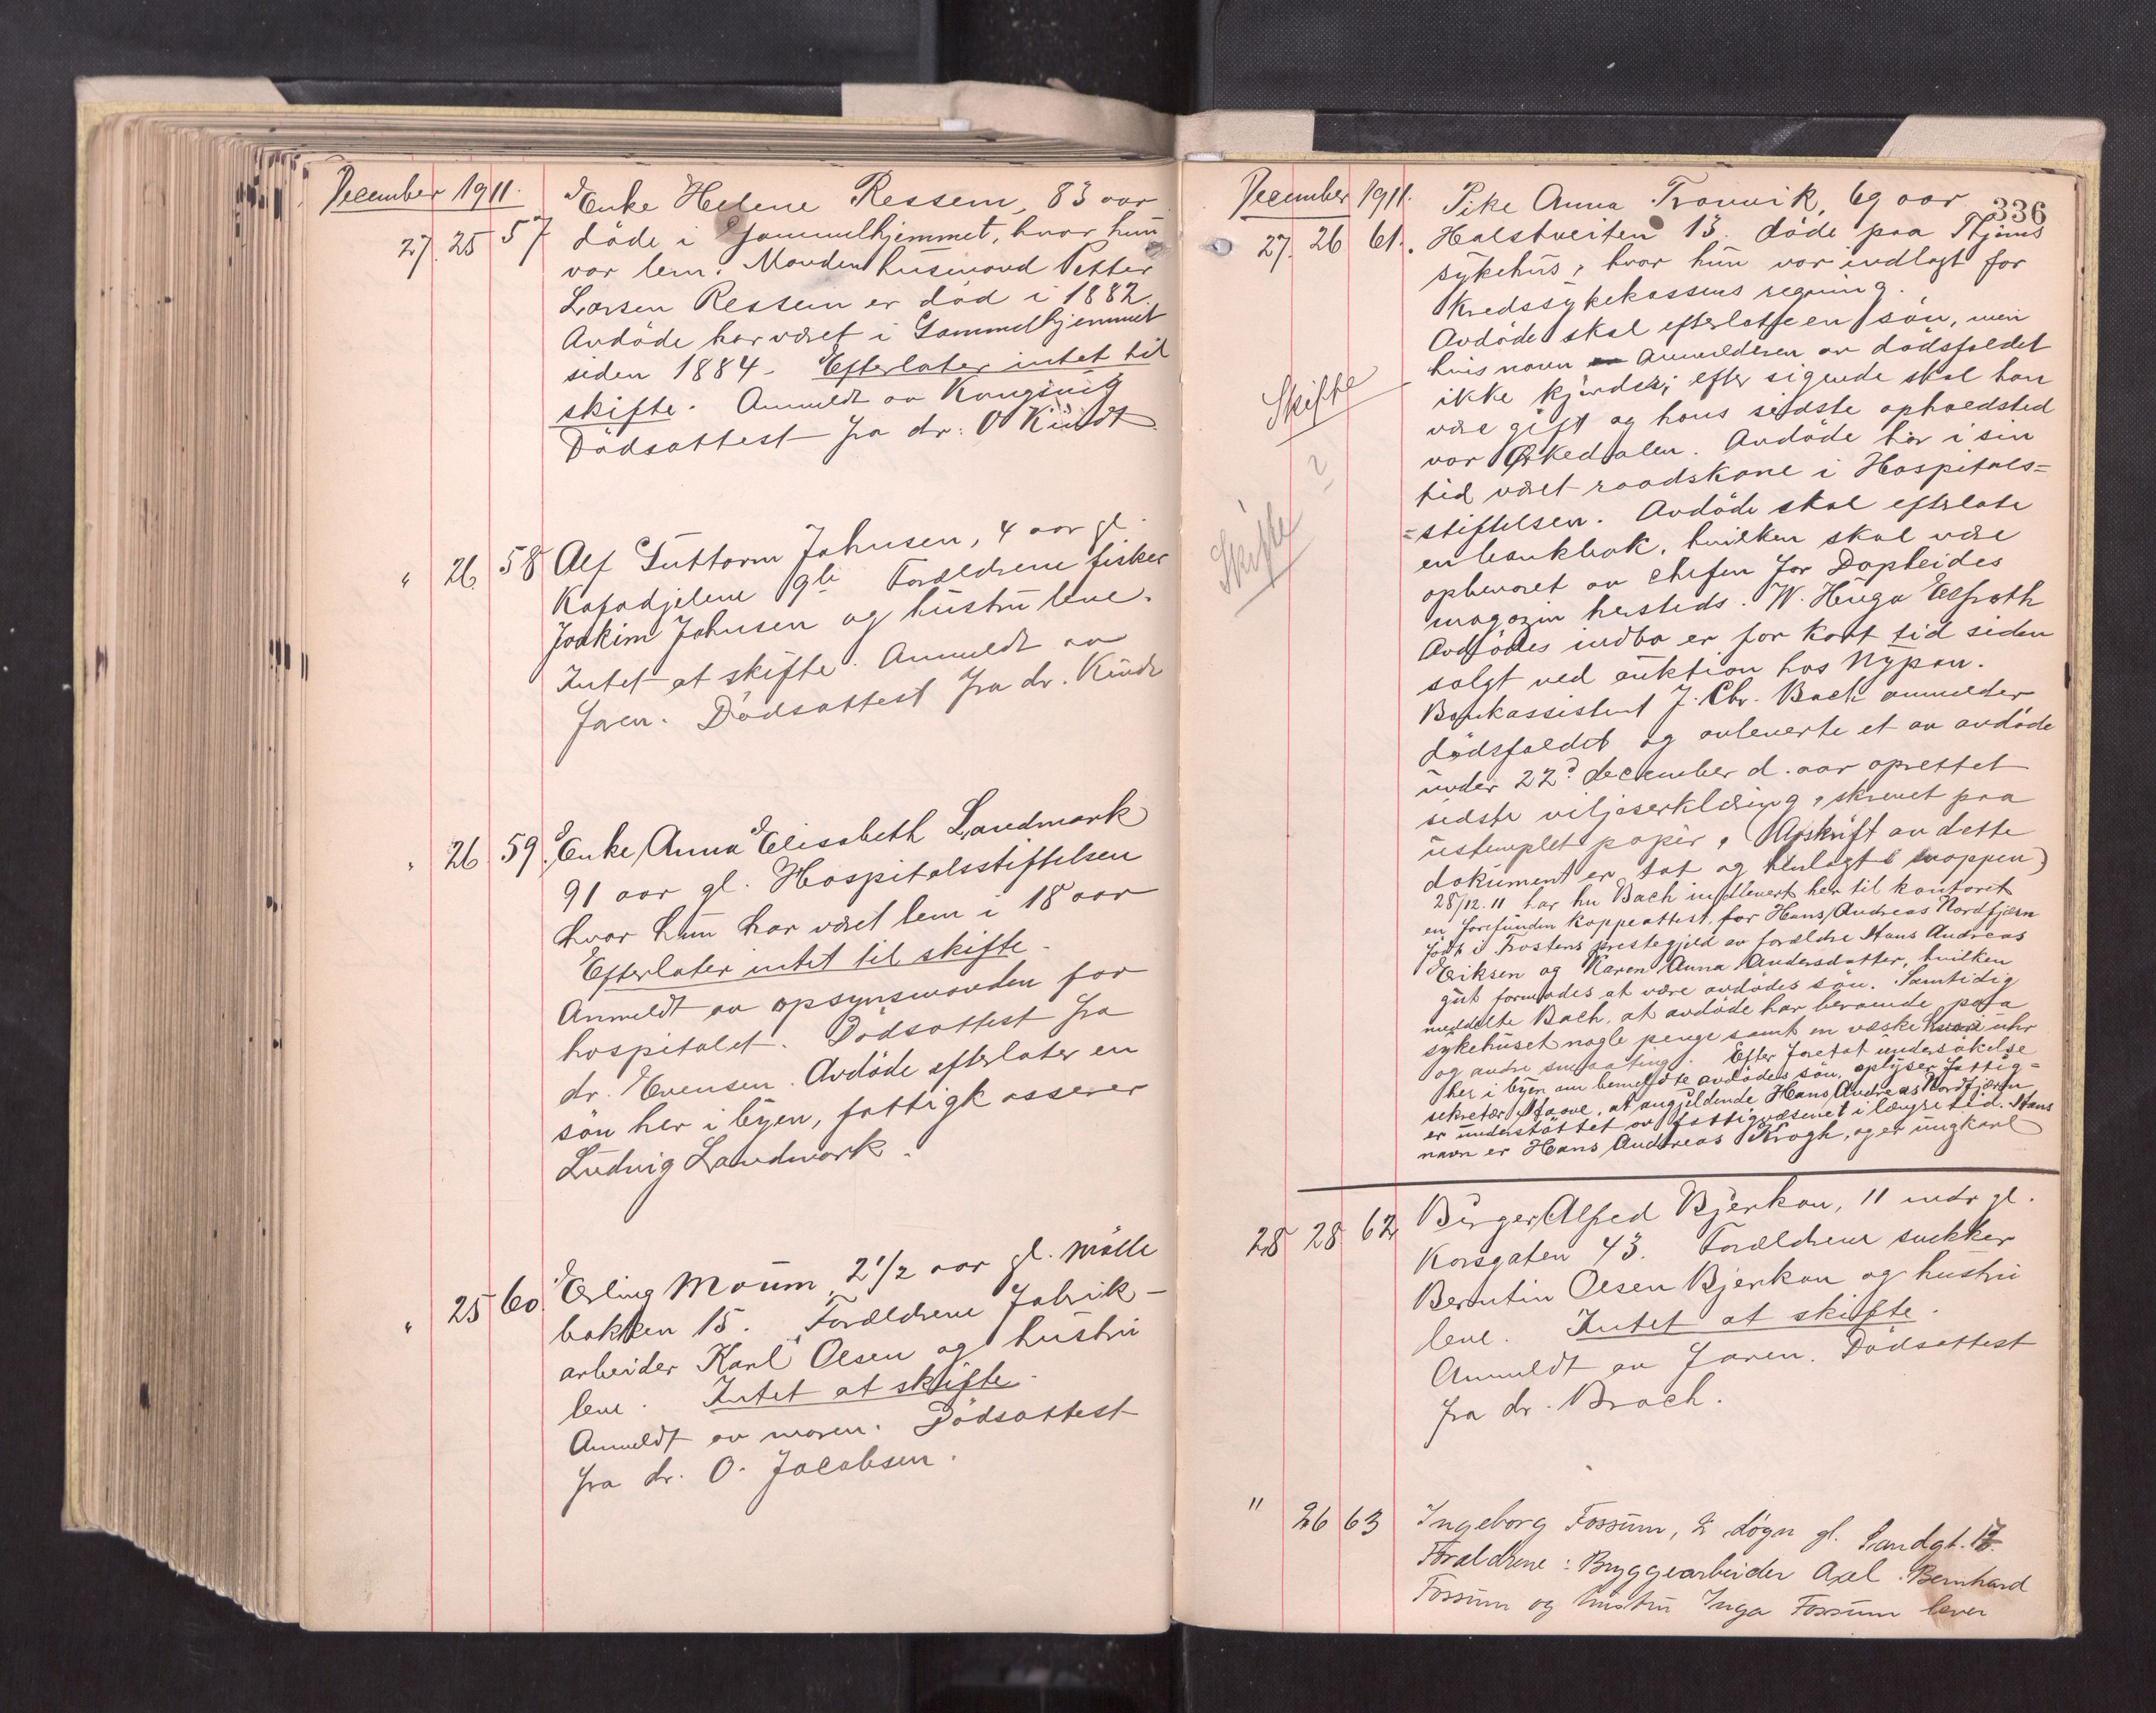 December 1911.
27. 25 57 Enke Helene Ressem, 83 aar
döde i Gammelhjemmet, hvor hun
var lem. Manden husmand Petter
Larsen Ressem er död i 1882.
Avdöde har været i Gammelhjemmet
siden 1884 - Efterlater intet til
skifte. Anmeldt av Kongsvig
Dödsattest fra dr. O Kindt
" 26. 58 Alf Guttorm Johnsen, 4 aar gl.
9b Forældrene fisker
Joakim Johnsen og hustru leve.
Intet at skifte. Anmeldt av
faren. Dödsattest fra dr. Kindt
" 26 59. Enke Anna Elisabeth Landmark
91 aar gl. Hospitalsstiftelsen
hvor hun har været lem i 18 aar
Efterlater intet til skifte.
Anmeldt av opsynsmanden for
hospitalet. Dödsattest fra
dr. Evensen. Avdöde efterlater en
sön her i byen, fattigkasserer
Ludvig Landmark.
" 25 60. Erling Moum, 2 1/2 aar gl. Mölle
bakken 15. Forældrene fabrik-
arbeider Karl Olsen og hustru
leve. Intet at skifte.
Anmeldt av moren. Dödsattest
fra dr. O. Jacobsen.
336
December 1911.
27. 26 61. Pike Anna Tranvik, 69 aar
Halstveiten 13. döde paa
sykehus, hvor hun var indlagt for
Kredssykekassens regning.
Avdöde skal efterlate en sön, men
hvis navn anmelderen av dödsfaldet
Skifte
ikke kjender; efter sigende skal han
være gift og hans sidste opholdsted
var Orkedalen. Avdöde har i sin
tid været raadskone i Hospitals=
=stiftelsen. Avdöde skal efterlate
Skifte ?
en bankbok, hvilken skal være
opbevaret av chefen for Dapleides
magazin hersteds. W. Hugo
Avdödes indbo er for kort tid siden
solgt ved auktion hos Nypan.
Bankassistent J. Chr. Bach anmelder
dödsfaldet og avleverte et av avdöde
under 22d december d. aar oprettet
sidste viljeserklæring, skrevet paa
ustemplet papir, (Avskrift av dette
dokument er tat og henlagt i mappen)
28/12. 11 har hr Bach indlevert her til kontoret
en forefunden koppeattest for Hans Andreas Nordfjærn
födt i Frostens prestegjeld av forældre Hans Andreas
Eriksen og Karen Anna Andersdatter, hvilken
gut formodes at være avdödes sön. Samtidig
meddelte Bach, at avdöde har beroende paa
sykehuset nogle penge samt en væske uhr
og andre smaating. Efter foretat undersökelse
her i byen om bemeldte avdödes sön, oplyser fattig=
sekretær, at angjeldende Hans Andreas Nordfjærn
er understöttet av fattigvæsenet i længre tid. Hans
navn er Hans Andreas Krogh, og er ungkarl
28 28 62 Birger Alfred Bjerkan, 11 mdr gl.
Korsgaten 43. Forældrene snekker
Berntin Olsen Bjerkan og hustru
leve. Intet at skifte.
Anmeldt av faren. Dödsattest
fra dr. Brach.
" 26 63 Ingeborg Fossum, 2 døgn gl. Sandgt. 17.
Forældrene: Bryggearbeider Axel Bernhard
Fossum og hustru Inga Fossum lever